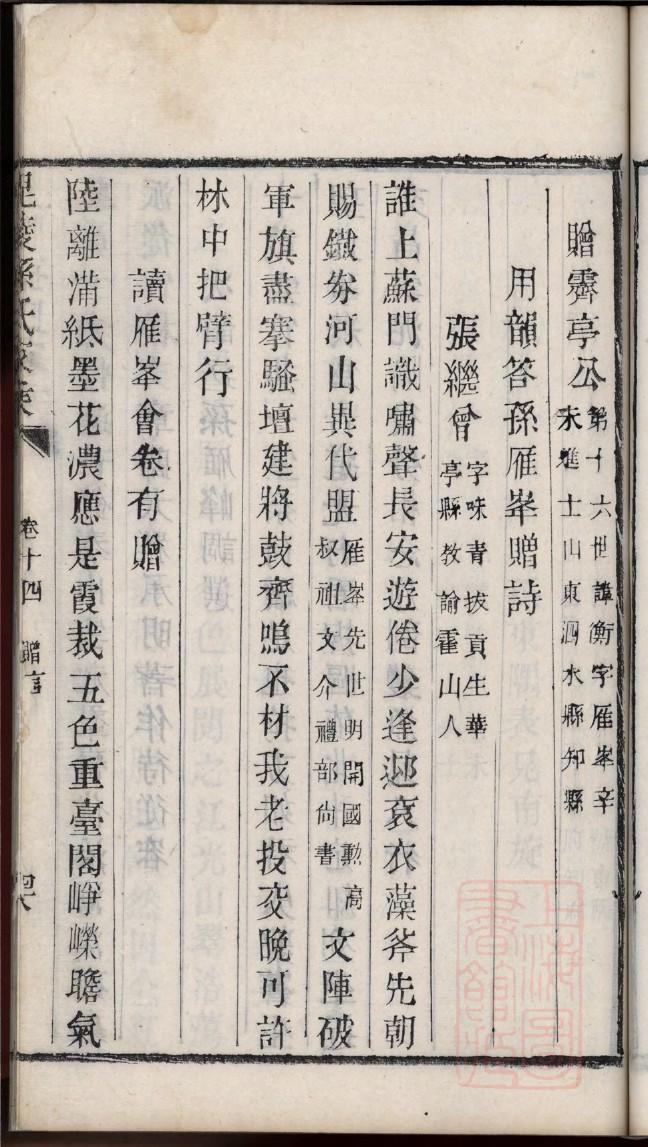 贈霽亭公第十六世諱衡字雁峯辛
未進士山東泗水縣知縣
用韻答孫雁峯贈詩
張繼曾字味青拔貢生華
亭縣教諭霍山人
誰上蘇門識嘯聲長安遊倦少逢迎袞衣藻斧先朝
賜鐵劵河山異代盟雁峯先世明開國勳裔
叔祖文介禮部尙書
文陣破
軍旗盡搴騷壇建將鼓齊鳴不材我老投交晚可許
林中把臂行
讀雁峯會卷有贈
陸離滿紙墨花濃應是霞裁五色重臺閣崢嶸瞻氣
毘陵孫氏家乘
卷十四
贈言
上海圖書館藏